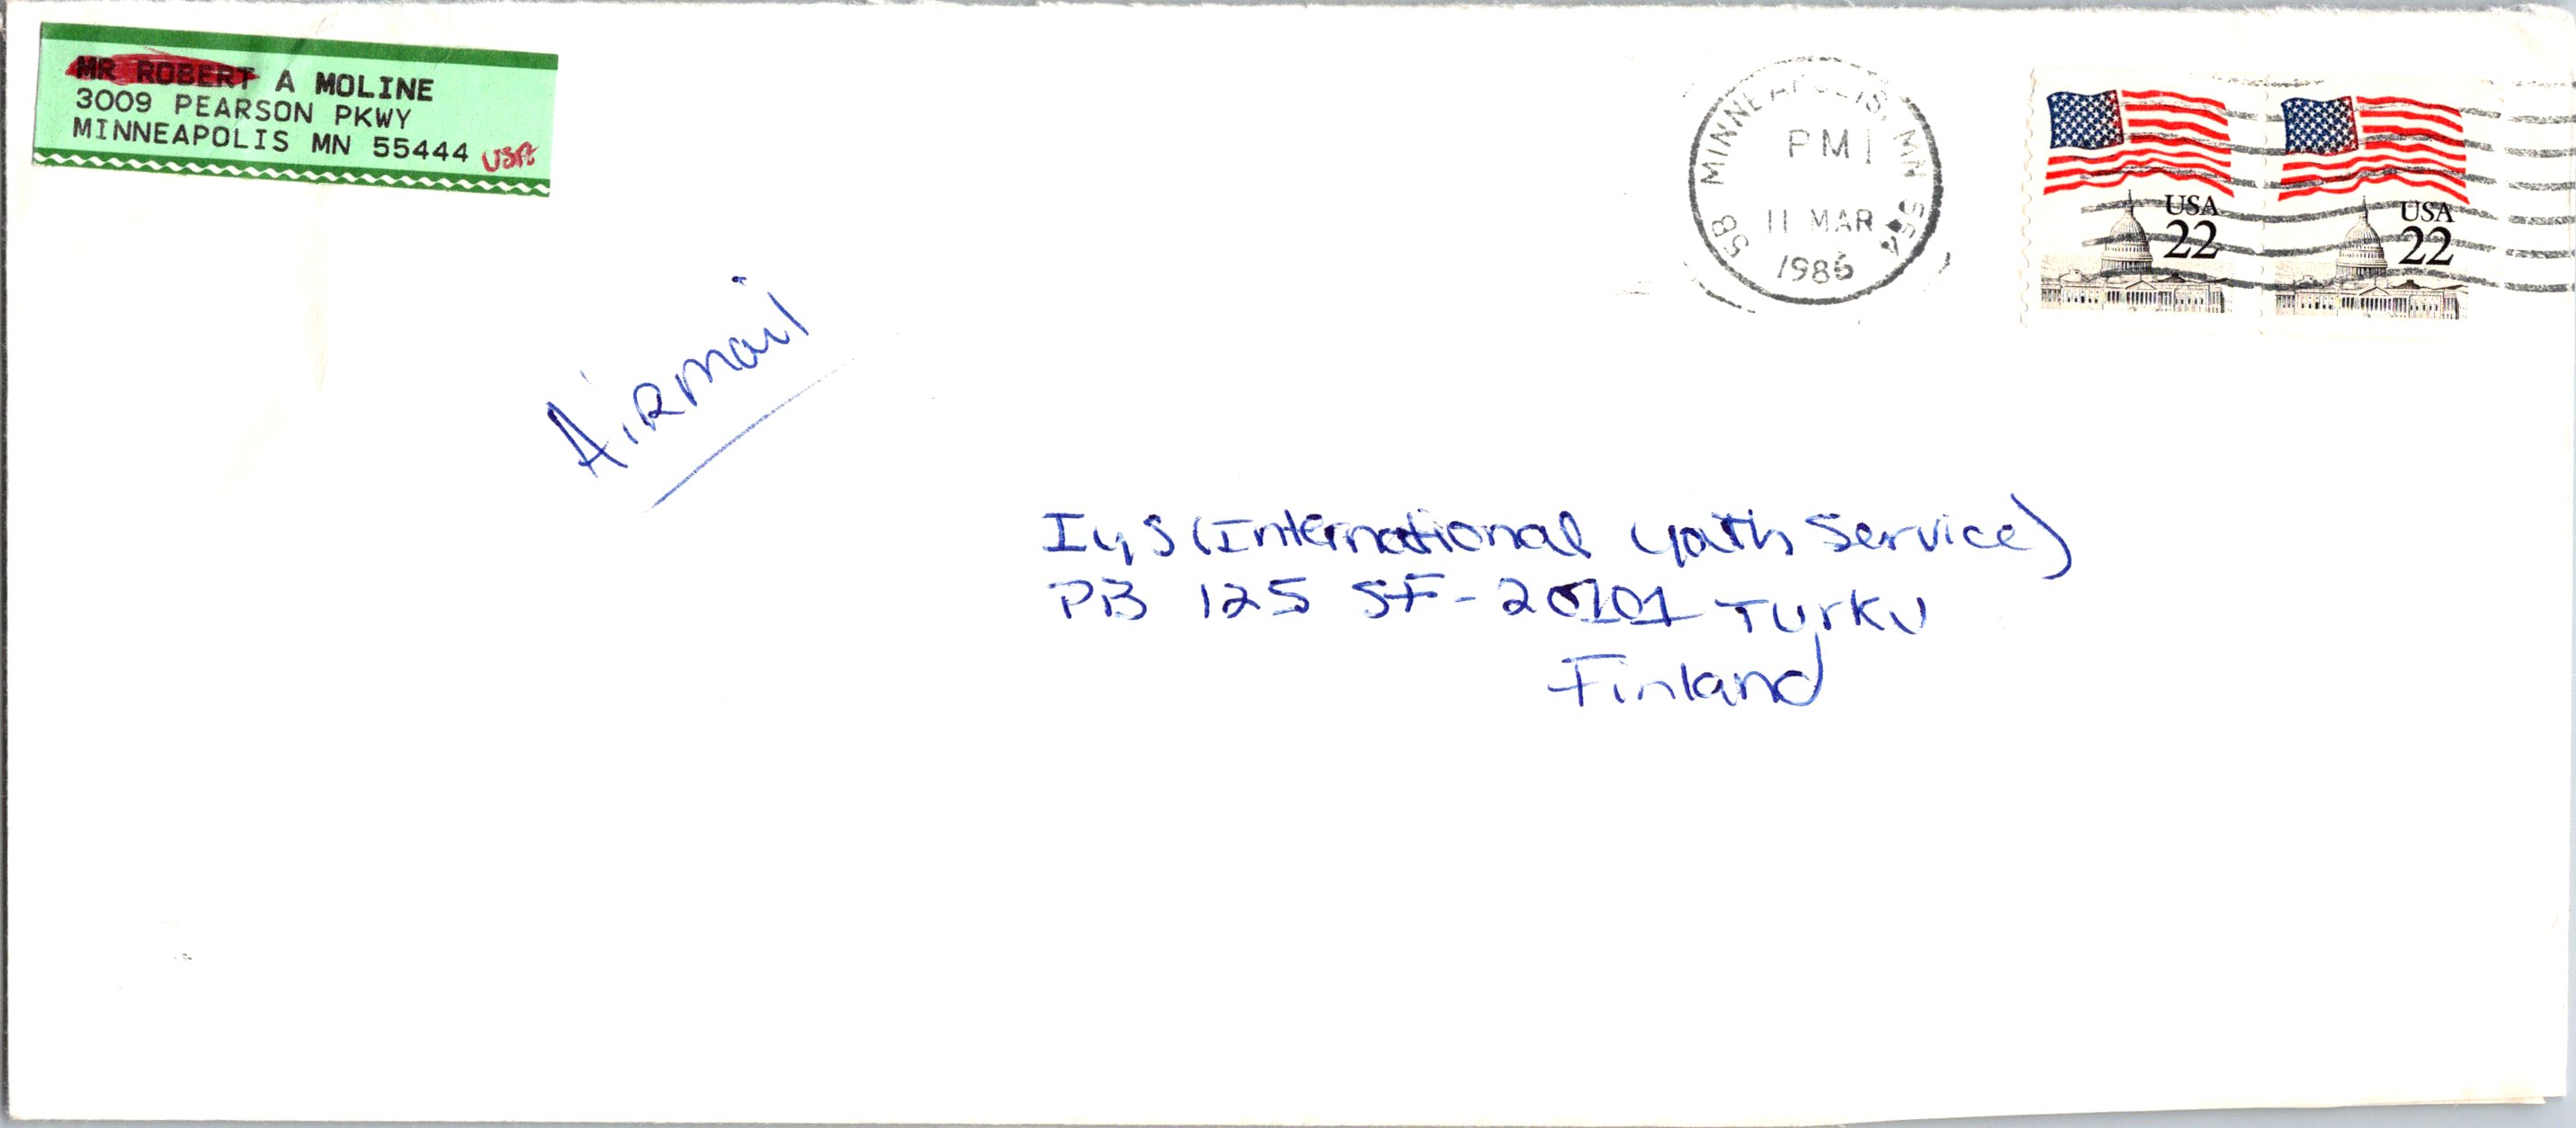 MR ROBERT A MOLINE
3009 PEARSON PKWY
MINNEAPOLIS MN 55444 USA
MINNEAPOLIS, MN 554
PM
11 MAR
1986
SB
USA
22
USA
22
Airmail
IYS (International Youth Service)
PB 125 SF-20101 Turku
Finland